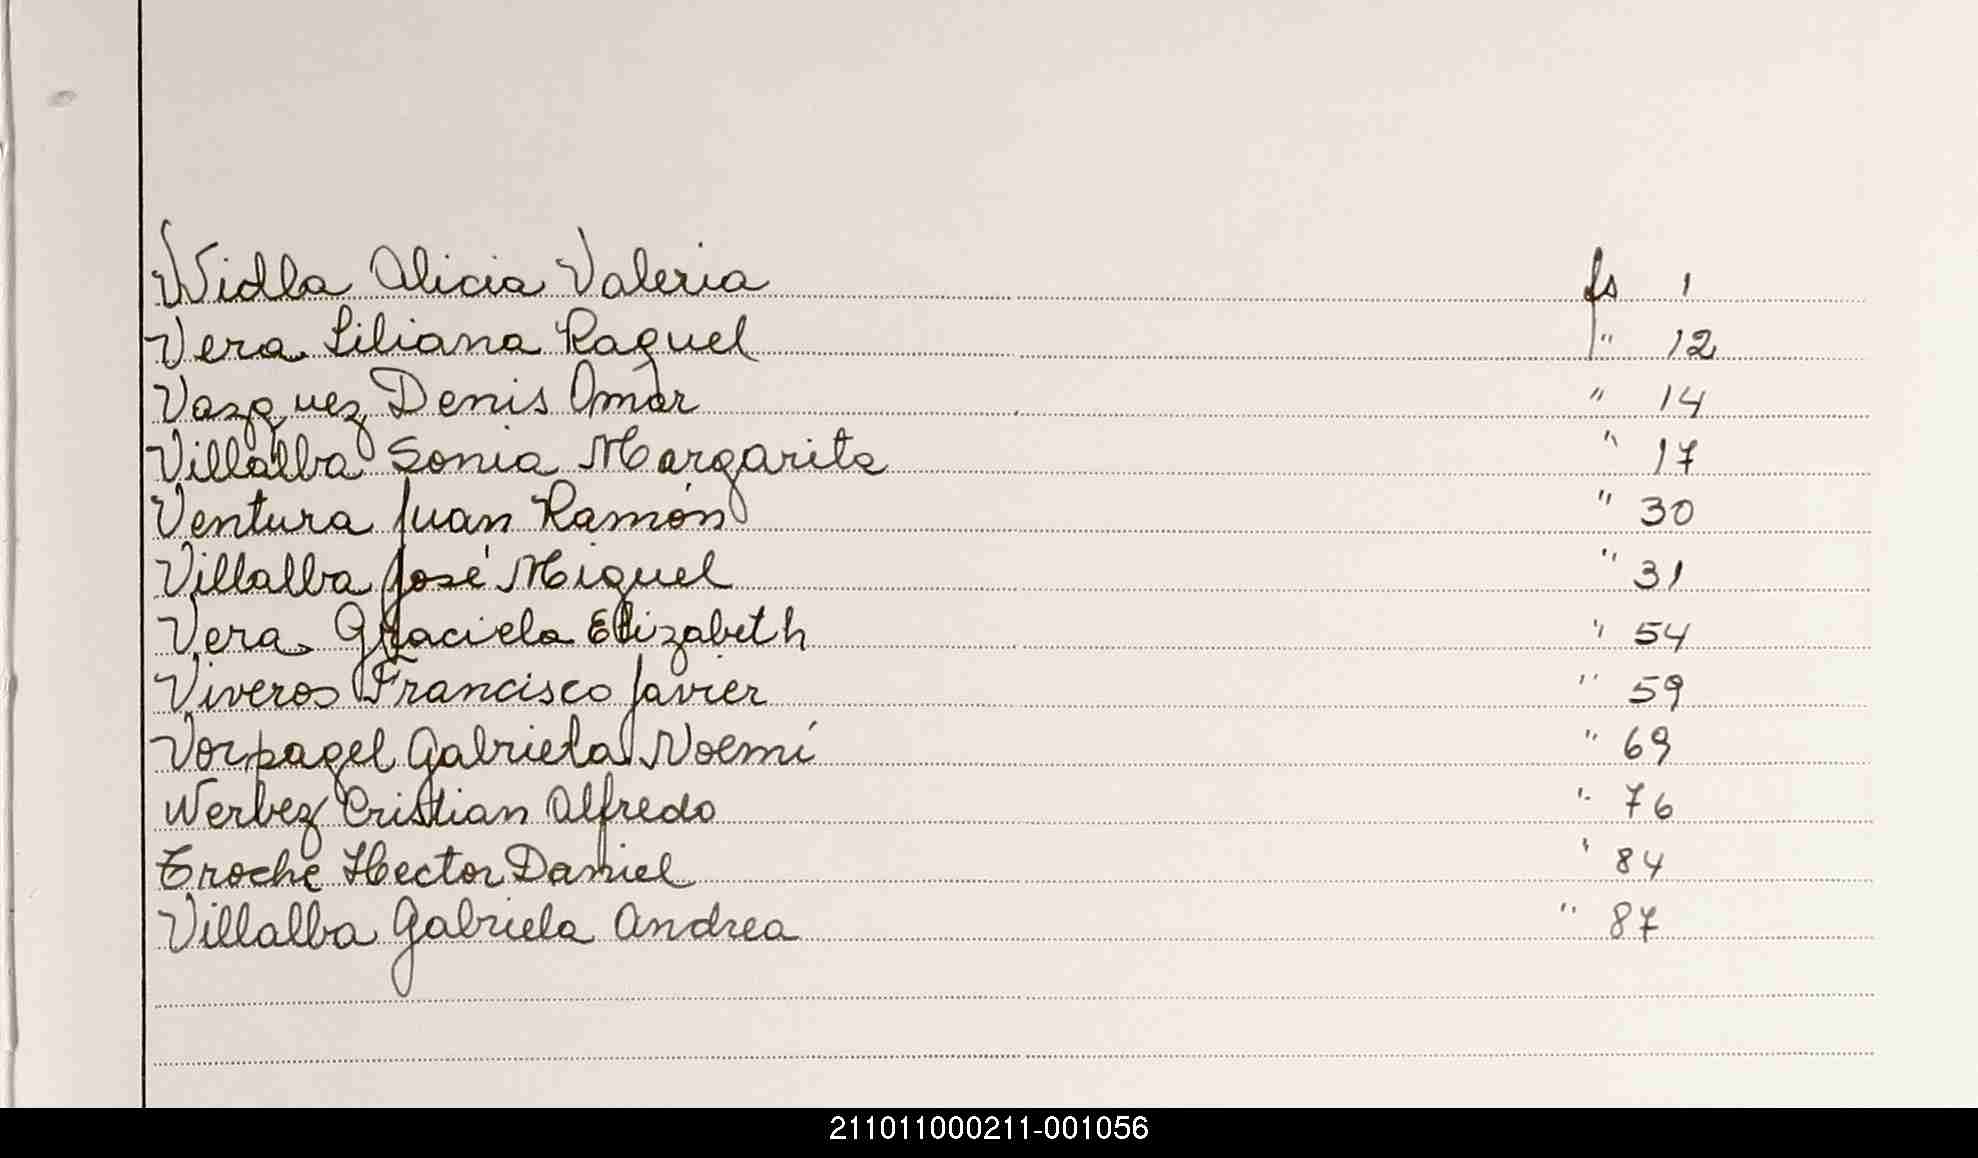 Widla Alicia Valeria fs 1
Vera Liliana Raquel " 12
Vazquez Denis Omar " 14
Villalba Sonia Margarita " 17
Ventura Juan Ramón " 30
Villalba José Miguel " 31
Vera Graciela Elizabeth " 54
Viveros Francisco Javier " 59
Vorpagel Gabriela Noemí " 69
Werbez Cristian Alfredo " 76
Troche Hector Daniel " 84
Villalba Gabriela Andrea " 87
211011000211-001056